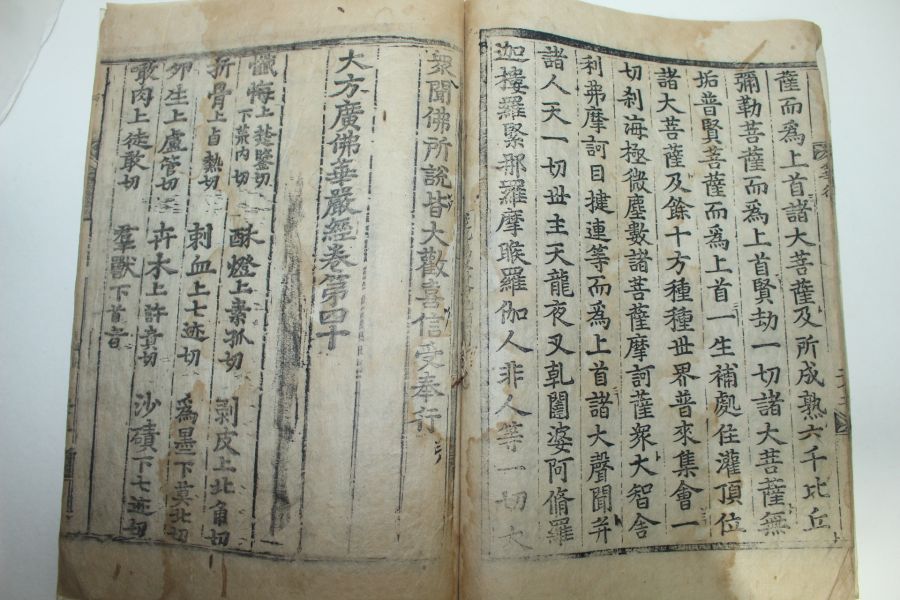 薩而爲上首諸大菩薩及所成熟六千比丘
彌勒菩薩而爲上首賢劫一切諸大菩薩無
垢普賢菩薩而爲上首一生補處住灌頂位
諸大菩薩及餘十方種種世界普來集會一
切刹海極微塵數諸菩薩摩訶薩衆大智舍
利弗摩訶目揵連等而爲上首諸大聲聞幷
諸人天一切世主天龍夜叉乹闥婆阿脩羅
迦樓羅緊那羅摩睺羅伽人非人等一切大
衆聞佛所說皆大歡喜信受奉行
大方廣佛華嚴經卷第四十
懺悔上楚鑒切下荒內切 酥燈上素孤切 剥皮上北角切
折骨上旨熱切 刺血上七迹切 爲墨下莫北切
卵生上盧管切 卉木上許貴切 沙磧下七迹切
噉肉上徒敢切 羣獸下首音